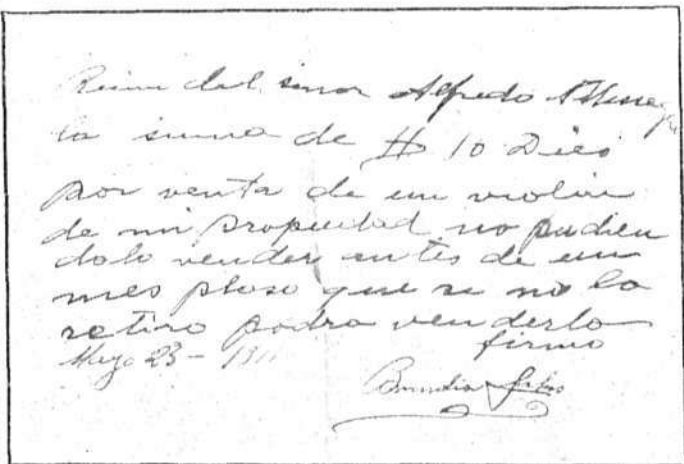 del señor Alfredo
la suma de $ 10 Dies
por venta de un violin
de mi propiedad no pudien
dolo vender antes de un
mes plaso que si no lo
retiro podra venderlo
firmo
23 -